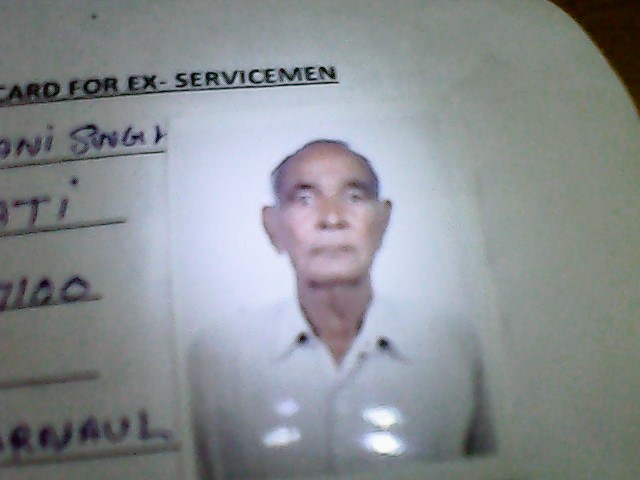 CARD FOR EX- SERVICEMEN
ANI SINGH
ATI
7100
ARNAUL